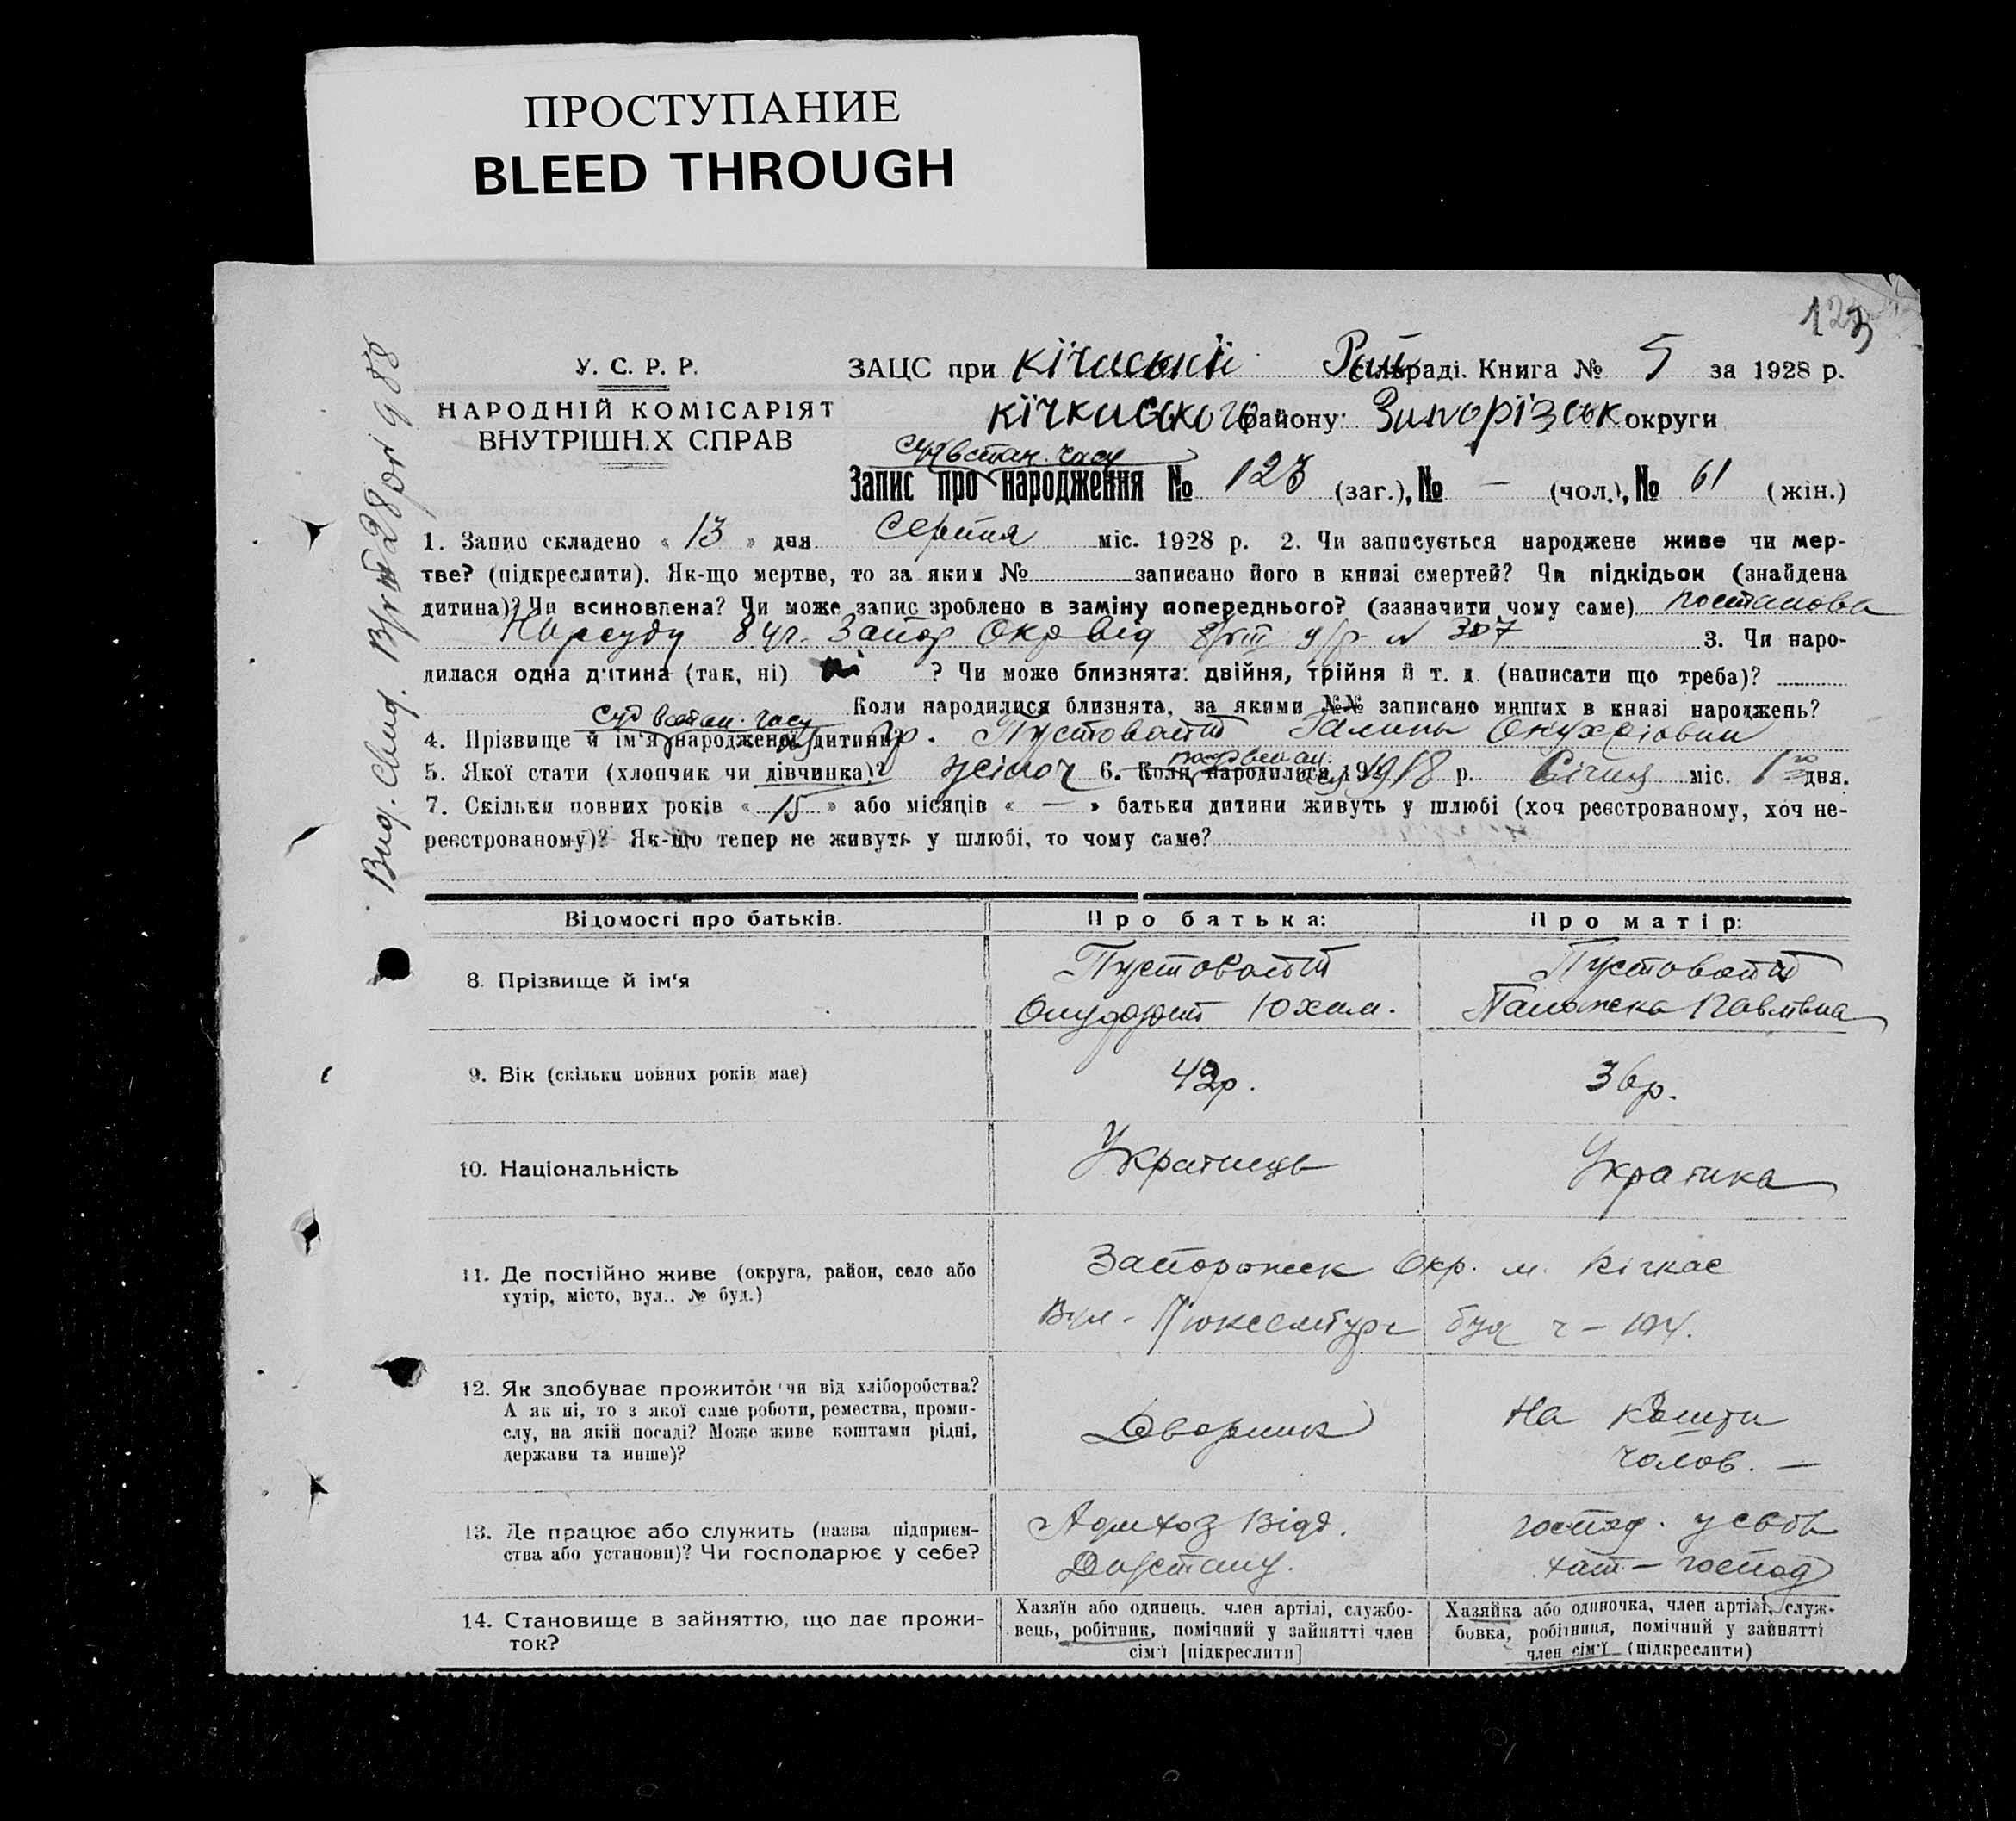 ПРОСТУПАНИЕ
BLEED THROUGH
123
У. С. Р. Р.
НАРОДНІЙ КОМІСАРІЯТ
ВНУТРІШН.Х СПРАВ
ЗАЦС при Кічкаській Рай раді. Книга № 5 за 1928 р.
Кічкаського району Запорізьк округи
суд встан. часу
Запис про народження № 123 (заг.), № — (чол.), № 61 (жін.)
1. Запис складено « 13 » дня Серпня міс. 1928 р. 2. Чи записується народжене живе чи мер-
тве? (підкреслити). Як-що мертве, то за яким № записано його в книзі смертей? Чи підкідьок (знайдена
дитина)? Чи всиновлена? Чи може запис зроблено в заміну попереднього? (зазначити чому саме) постанова
Нарсуду 8 уч. Запор Окр від № 307 3. Чи наро-
дилася одна дитина (так, ні) ні ? Чи може близнята: двійня, трійня й т. д. (написати що треба)?
Коли народилися близнята, за якими №№ записано инших в книзі народжень?
суд встан. часу
4. Прізвище й ім'я народженої дитини гр. Пустовойт
5. Якої стати (хлопчик чи дівчинка)? жіноч 6. Коли народилася 1918 р. Січня міс. 1го дня.
7. Скільки повних років « 15 » або місяців « — » батьки дитини живуть у шлюбі (хоч реєстрованому, хоч не-
реєстрованому)? Як-що тепер не живуть у шлюбі, то чому саме?
Відомості про батьків. Про батька: Про матір:
8. Прізвище й ім'я Пустовойт Пустовойт
Юхим. Павлівна
9. Вік (скільки повних років має) 42р. 36р.
10. Національність Українець Українка
11. Де постійно живе (округа, район, село або
хутір, місто, вул., № буд.)
Запорожск Окр. м. Кічкас
Вул. буд ч – 194.
12. Як здобуває прожиток чи від хліборобства?
А як ні, то з якої саме роботи, ремества, проми-
слу, на якій посаді? Може живе коштами рідні,
держави та инше)?
Дворник
На кошти
чолов. —
13. Де працює або служить (назва підприєм-
ства або установи)? Чи господарює у себе?
Відд.
господ. у своє
хат – господ
14. Становище в зайняттю, що дає прожи-
ток?
Хазяїн або одинець. член артілі, службо-
вець, робітник, помічний у зайнятті член
сім'ї [підкреслити]
Хазяйка або одиночка, член артілі, служ-
бовка, робітниця, помічний у зайнятті
член сім'ї (підкреслити)